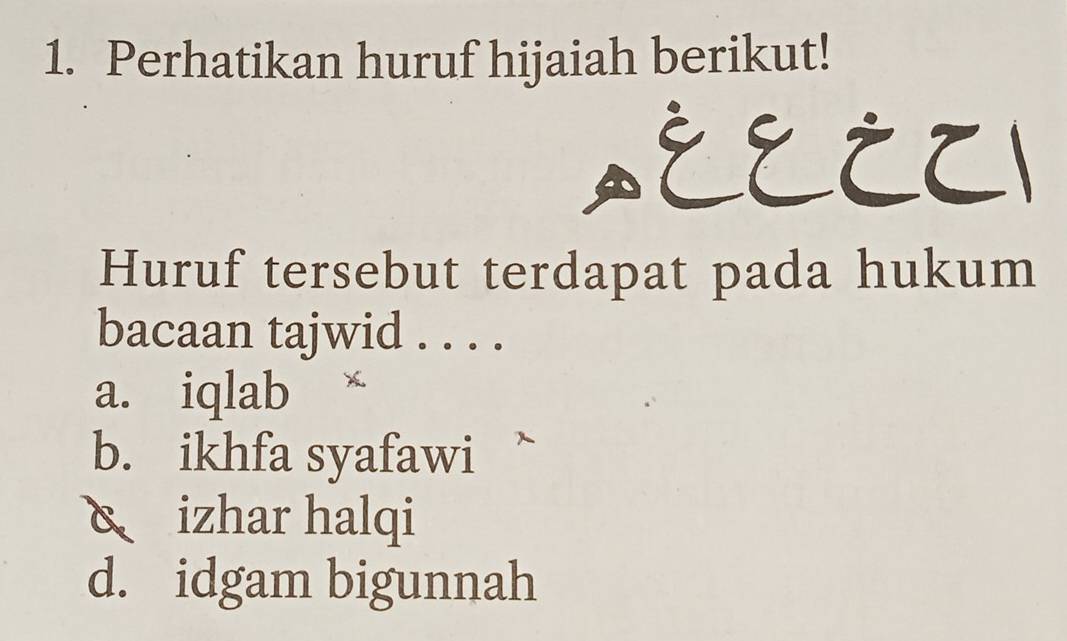 1. Perhatikan huruf hijaiah berikut!
ا ح خ ع غ ه
Huruf tersebut terdapat pada hukum
bacaan tajwid . . . .
a. iqlab
b. ikhfa syafawi
c. izhar halqi
d. idgam bigunnah